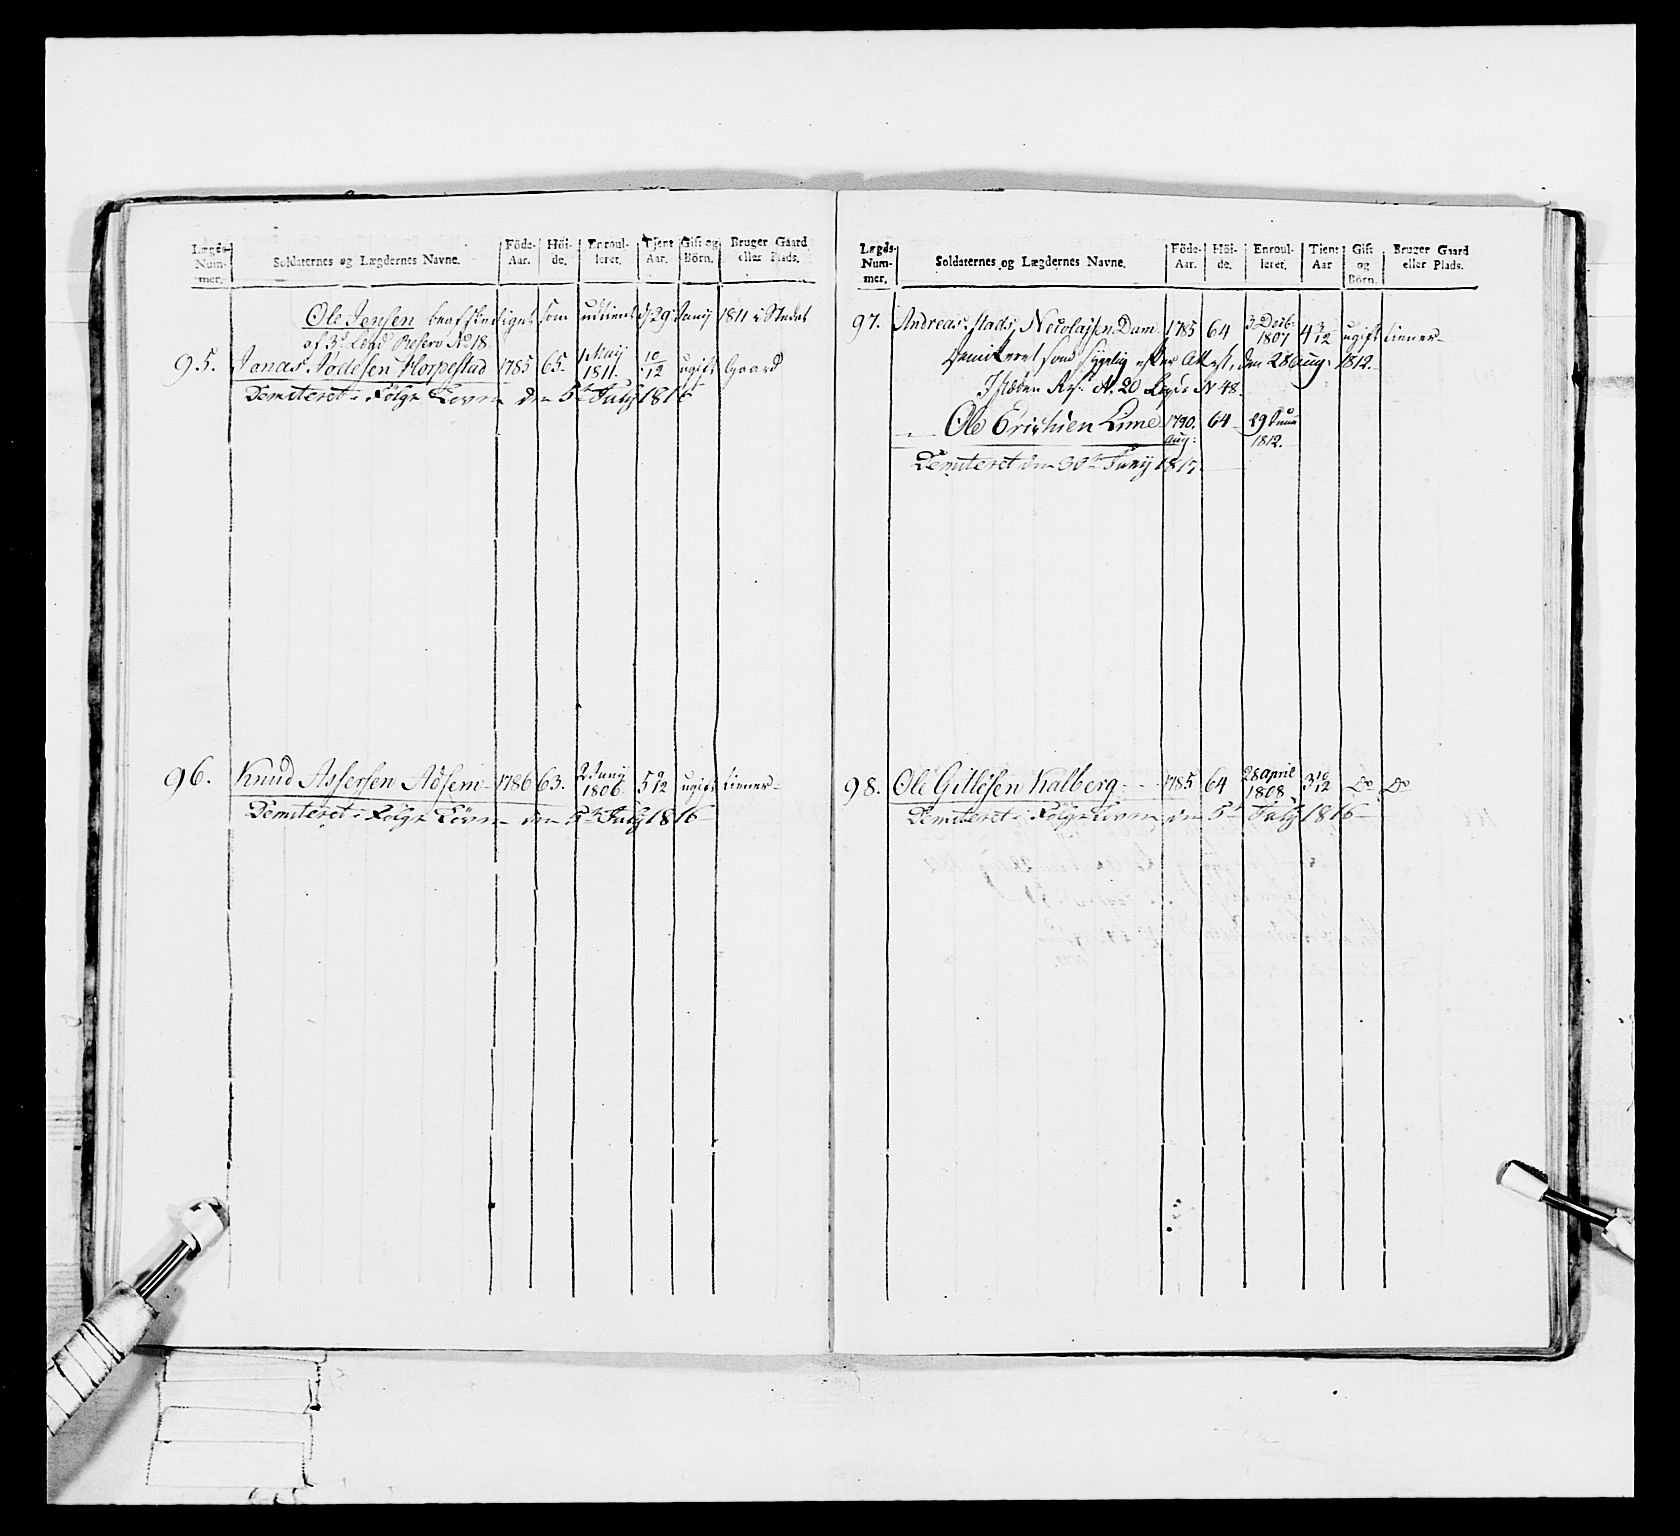 Lægds- Num- mer. Soldaternes og Lægdernes Navne. Föde- Aar. Höi- de. Enroul- leret. Tjent Aar. Gift og Börn. Bruger Gaard eller Plads.
Ole Jensen beafskediget som udtient d 29 Junij 1811 i Stedet
af 3d Lægd Reserv No 18.
95. Jonas Jodesen Horpestad 1785 65. 1 Maij 1811. 10/12 ugift Gaard
Demiteret i Følge Loven den 5te July 1816
96. Knud Assersen Adsem 1786 63. 2 Junij 1806 5 9/12 ugift tiener
Demiteret i Følge Loven den 5te July 1816
Lægds- Num- mer. Soldaternes og Lægdernes Navne. Föde- Aar. Höi- de. Enroul- leret. Tient Aar Gift og Börn. Bruger Gaard eller Plads.
97. Andreas Mads Nicolaisen Dam 1785 64 3 Decb: 1807 4 3/12 ugift tiener
Demiteret som sygelig efter Attest, den 28 Aug: 1812.
Isteden Res: N. 20 Legd: N 48.
Ole Erichsen Lime 1790. Aug: 64 29 Junij 1812.
Demiteret den 30te Junij 1817.
98. Ole Gitlesen Kalberg 1785 64 28 April 1808 3 10/12 Do Do
Demiteret i Følge Loven den 5te July 1816